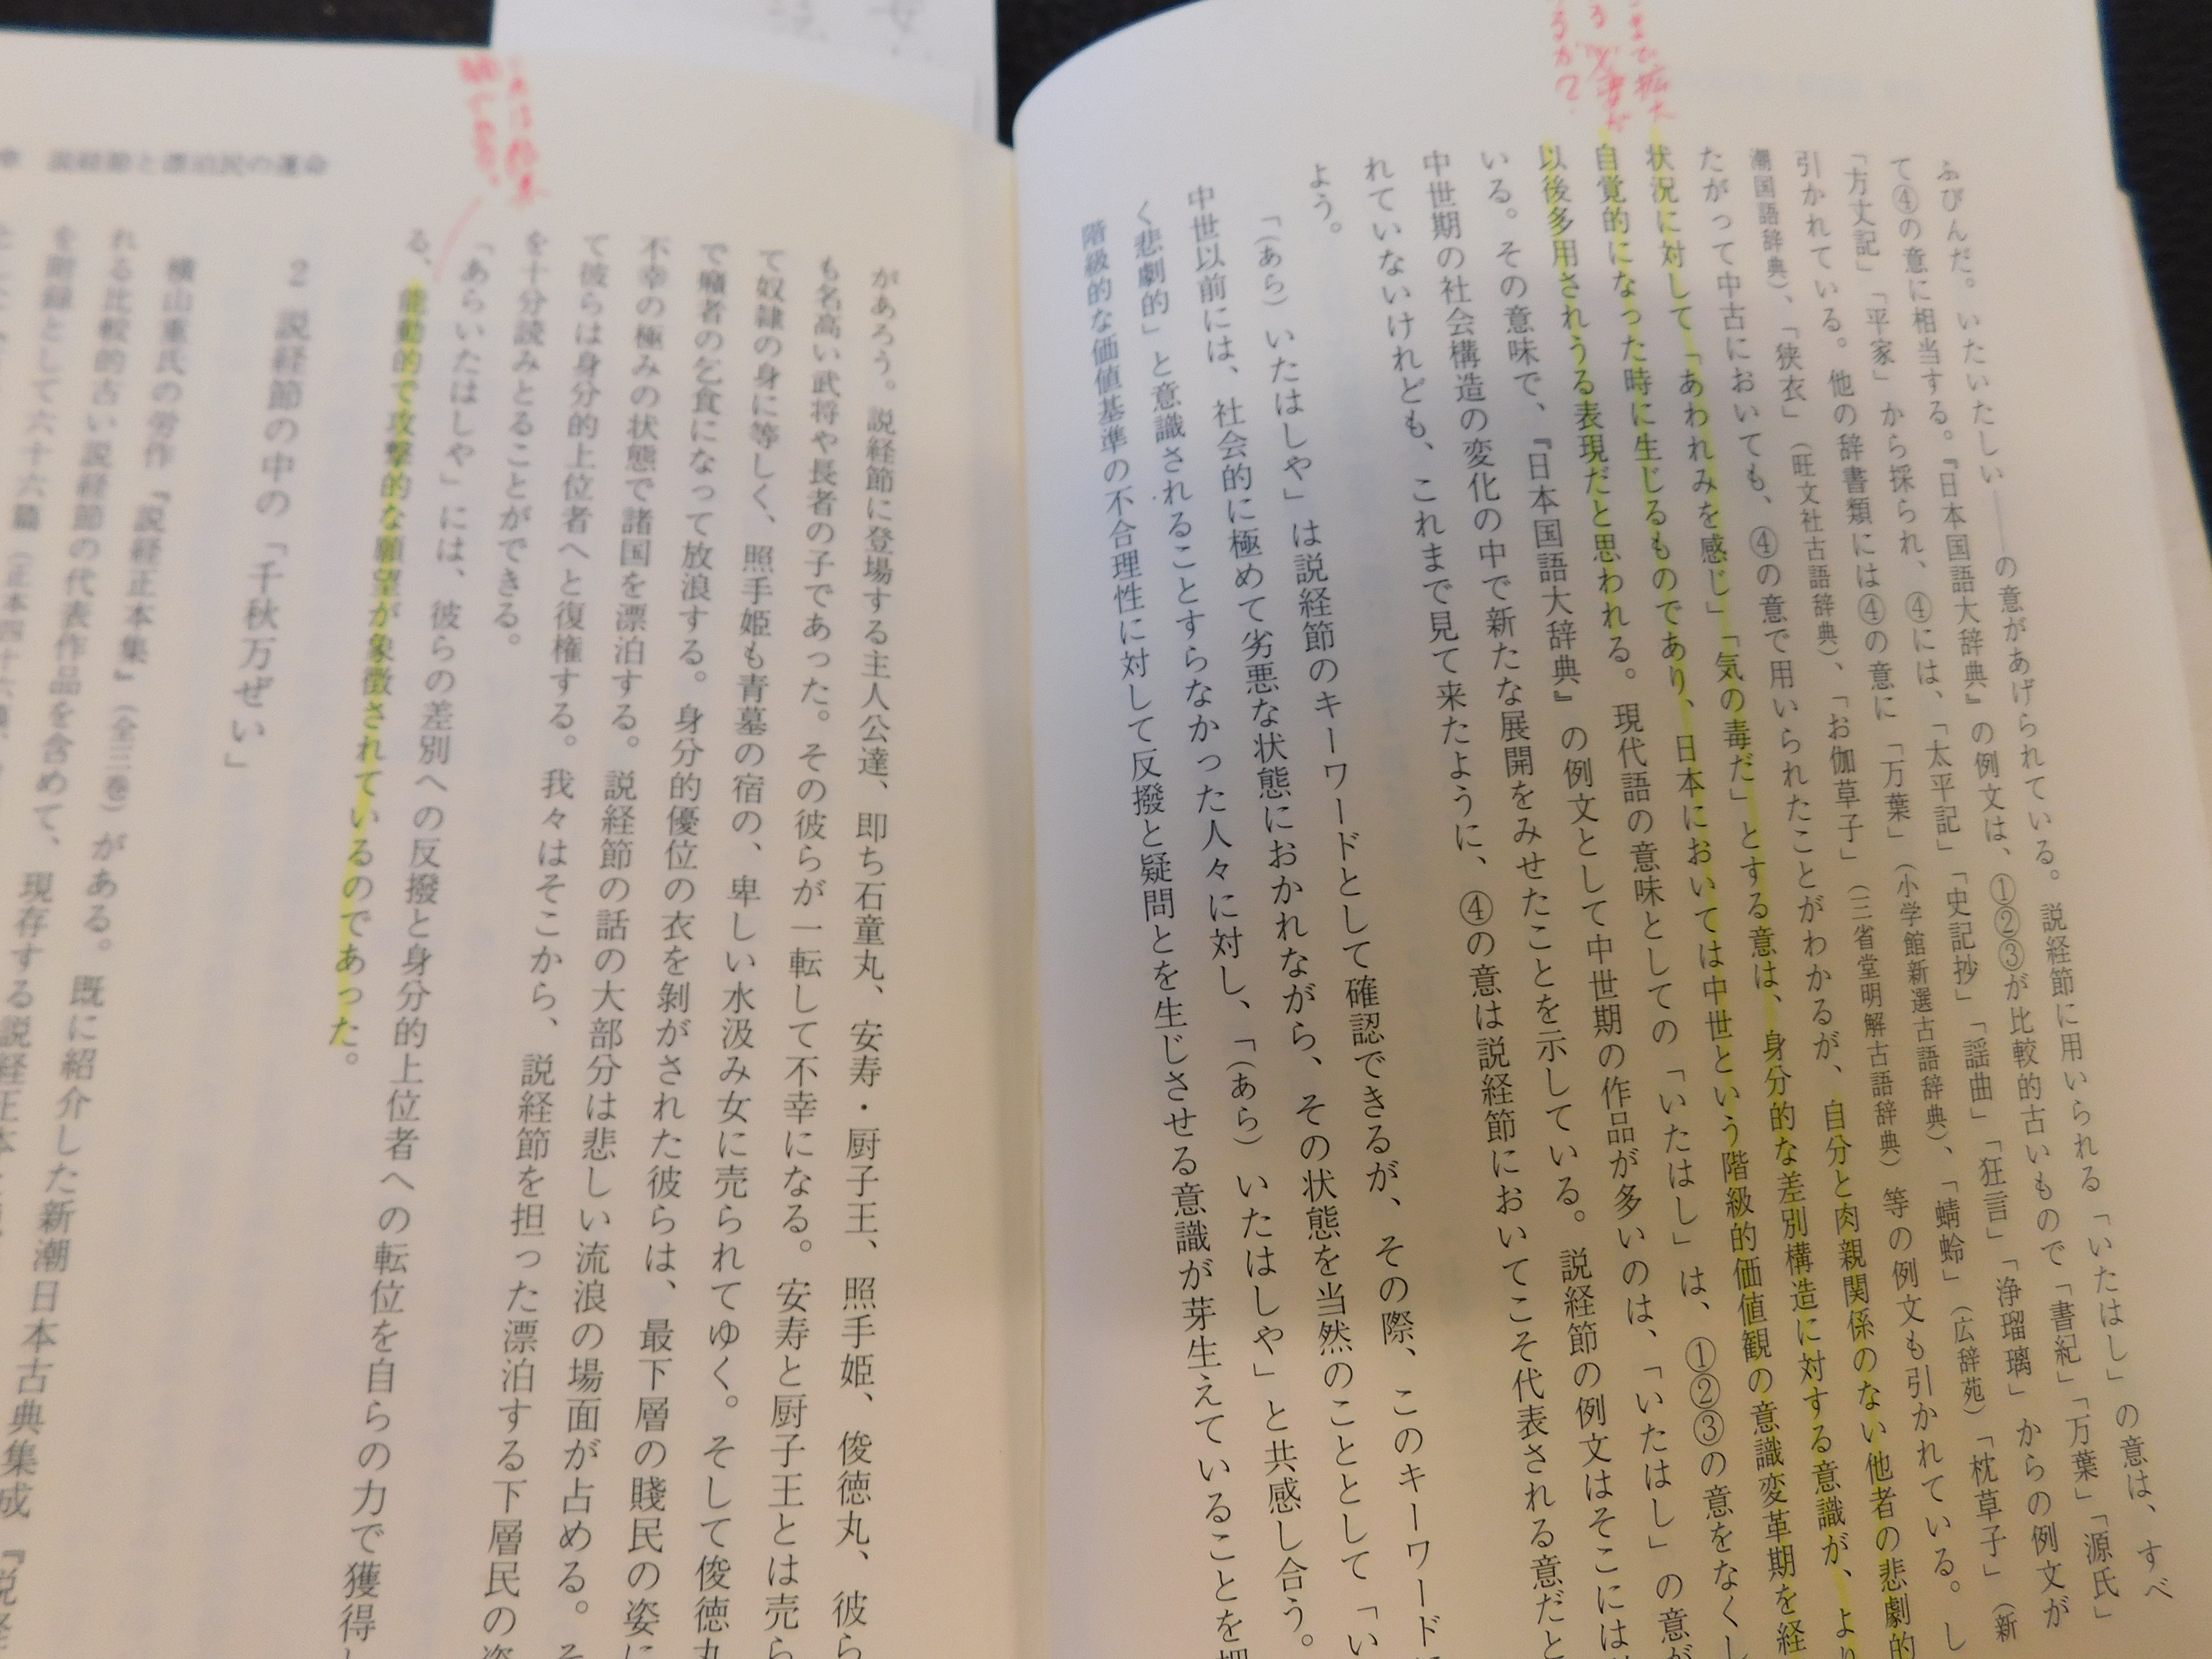 ふびんだ。いたいたしい――の意があげられている。説経節に用いられる「いたはし」の意は、すべ
て④の意に相当する。『日本国語大辞典』の例文は、①②③が比較的古いもので「書紀」「万葉」「源氏」
「方丈記」「平家」から採られ、④には、「太平記」「史記抄」「謡曲」「狂言」「浄瑠璃」からの例文が
引かれている。他の辞書類には④の意に「万葉」（小学館新選古語辞典）、「蜻蛉」（広辞苑）「枕草子」（新
潮国語辞典）、「狭衣」（旺文社古語辞典）、「お伽草子」（三省堂明解古語辞典）等の例文も引かれている。し
たがって中古においても、④の意で用いられたことがわかるが、自分と肉親関係のない他者の悲劇的
状況に対して「あわれみを感じ」「気の毒だ」とする意は、身分的な差別構造に対する意識が、より
自覚的になった時に生じるものであり、日本においては中世という階級的価値観の意識変革期を経
以後多用されうる表現だと思われる。現代語の意味としての「いたはし」は、①②③の意をなくし
いる。その意味で、『日本国語大辞典』の例文として中世期の作品が多いのは、「いたはし」の意が
中世期の社会構造の変化の中で新たな展開をみせたことを示している。説経節の例文はそこには
れていないけれども、これまで見て来たように、④の意は説経節においてこそ代表される意だと
よう。
「（あら）いたはしや」は説経節のキーワードとして確認できるが、その際、このキーワード
中世以前には、社会的に極めて劣悪な状態におかれながら、その状態を当然のこととして「い
く悲劇的」と意識されることすらなかった人々に対し、「（あら）いたはしや」と共感し合う。
階級的な価値基準の不合理性に対して反撥と疑問とを生じさせる意識が芽生えていることを
があろう。説経節に登場する主人公達、即ち石童丸、安寿・厨子王、照手姫、俊徳丸、彼ら
も名高い武将や長者の子であった。その彼らが一転して不幸になる。安寿と厨子王とは売ら
て奴隷の身に等しく、照手姫も青墓の宿の、卑しい水汲み女に売られてゆく。そして俊徳丸
で癩者の乞食になって放浪する。身分的優位の衣を剝がされた彼らは、最下層の賤民の姿に
不幸の極みの状態で諸国を漂泊する。説経節の話の大部分は悲しい流浪の場面が占める。そ
て彼らは身分的上位者へと復権する。我々はそこから、説経節を担った漂泊する下層民の
を十分読みとることができる。
「あらいたはしや」には、彼らの差別への反撥と身分的上位者への転位を自らの力で獲得し
る、能動的で攻撃的な願望が象徴されているのであった。
2 説経節の中の「千秋万ぜい」
横山重氏の労作『説経正本集』（全三巻）がある。既に紹介した新潮日本古典集成『説経
れる比較的古い説経節の代表作品を含めて、現存する説経正本
を附録として六十六篇
説経節と漂泊民の運命